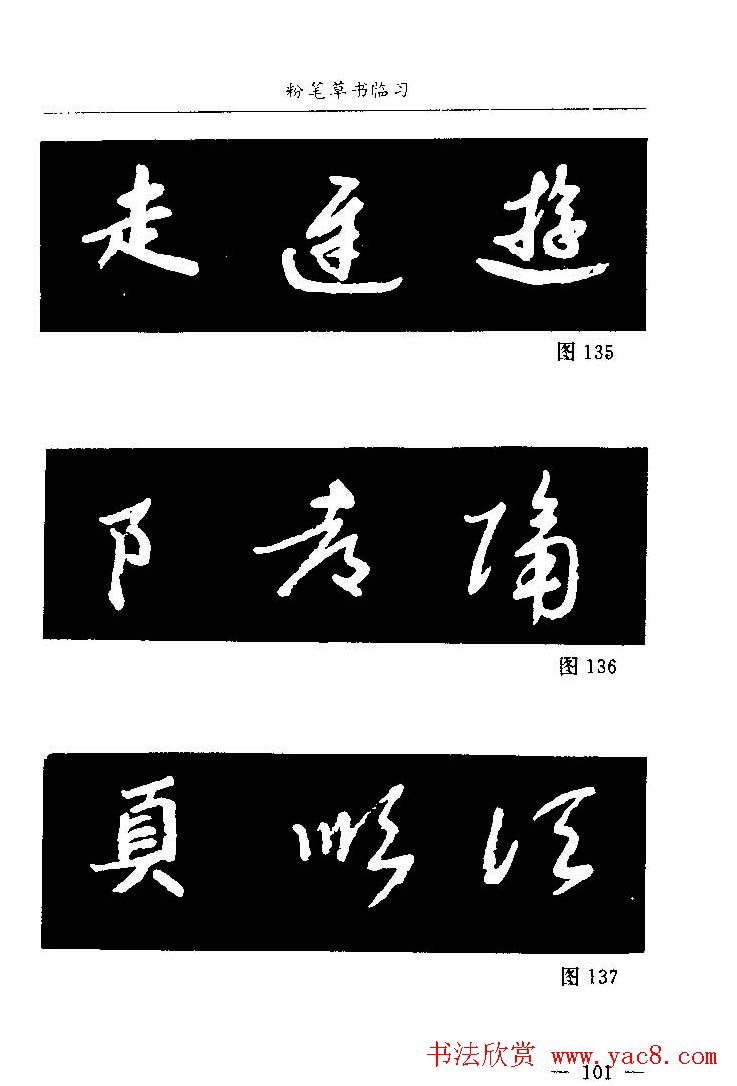 粉笔草书临习
走 遲 遊
图 135
阝 都 隔
图 136
頁 順
图 137
书法欣赏 www.yac8.com
— 101 —